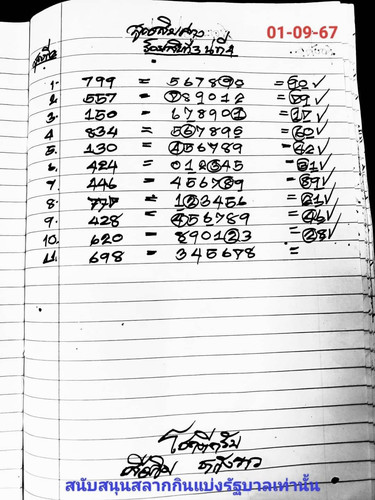 สูตรสิบสาว
01-09-67
1. 799 = 567890 = 50 ✓
2. 557 = 789012 = 79 ✓
3. 150 = 678901 = 17 ✓
4. 834 = 567895 = 60 ✓
5. 130 = 456789 = 42 ✓
6. 424 = 012345 = 31 ✓
7. 446 = 456789 = 89 ✓
8. 777 = 123456 = 21 ✓
9. 428 = 456789 = 46 ✓
10. 620 = 890123 = 28 ✓
11. 698 = 345678 =
โชคดีครับ
สนับสนุนสลากกินแบ่งรัฐบาลเท่านั้น